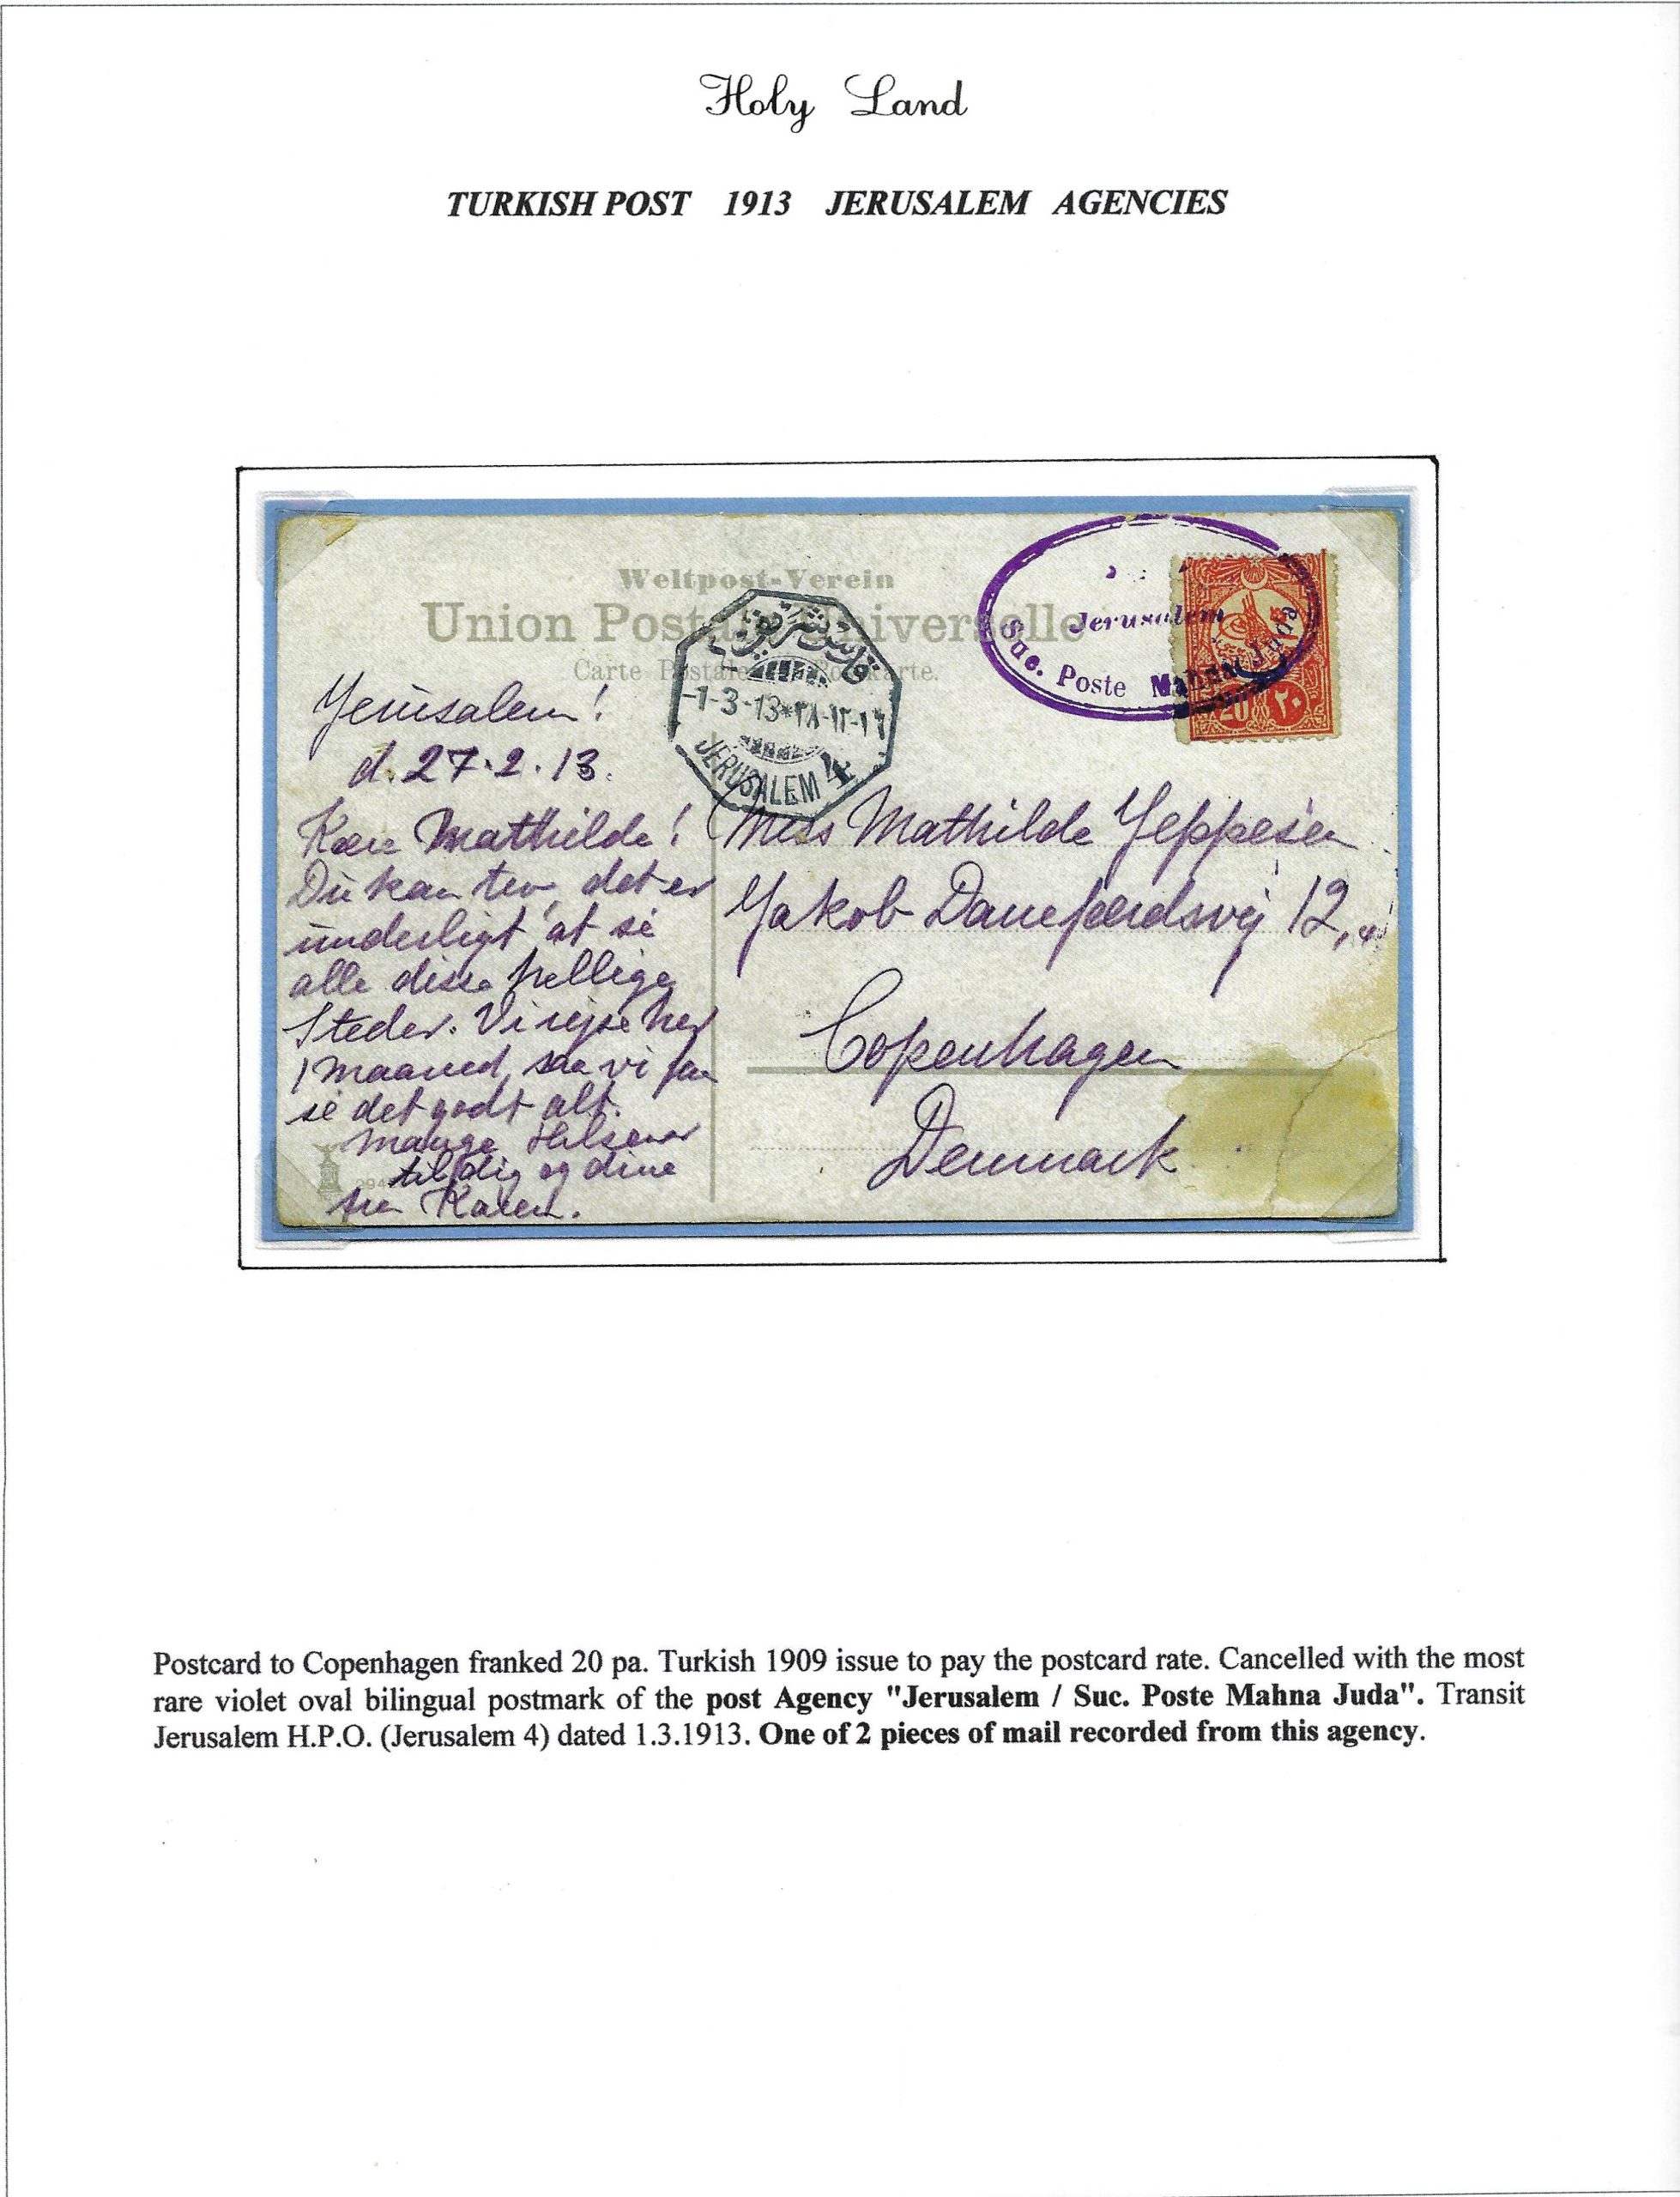 Holy Land
TURKISH POST 1913 JERUSALEM AGENCIES
Weltpost-Verein
Union Postale Universelle
Carte Postale Postkarte.
Jerusalem
Suc. Poste Mahna Juda
قدس شريف
-1-3-13*٢٨-١٢-١٦
JERUSALEM 4
20 ٢٠
Jerusalem!
d. 27.2.13.
Kære Mathilde!
Du kan tro, det er
underligt at se
alle disse hellige
Steder. Vi rejse her
1 Maaned, saa vi faa
se det godt alt.
Mange Hilsener
til dig og dine
fra Karen.
Miss Mathilde Jeppesen
Jakob Danefærdsvej 12,
Copenhagen
Denmark
Postcard to Copenhagen franked 20 pa. Turkish 1909 issue to pay the postcard rate. Cancelled with the most
rare violet oval bilingual postmark of the post Agency "Jerusalem / Suc. Poste Mahna Juda". Transit
Jerusalem H.P.O. (Jerusalem 4) dated 1.3.1913. One of 2 pieces of mail recorded from this agency.